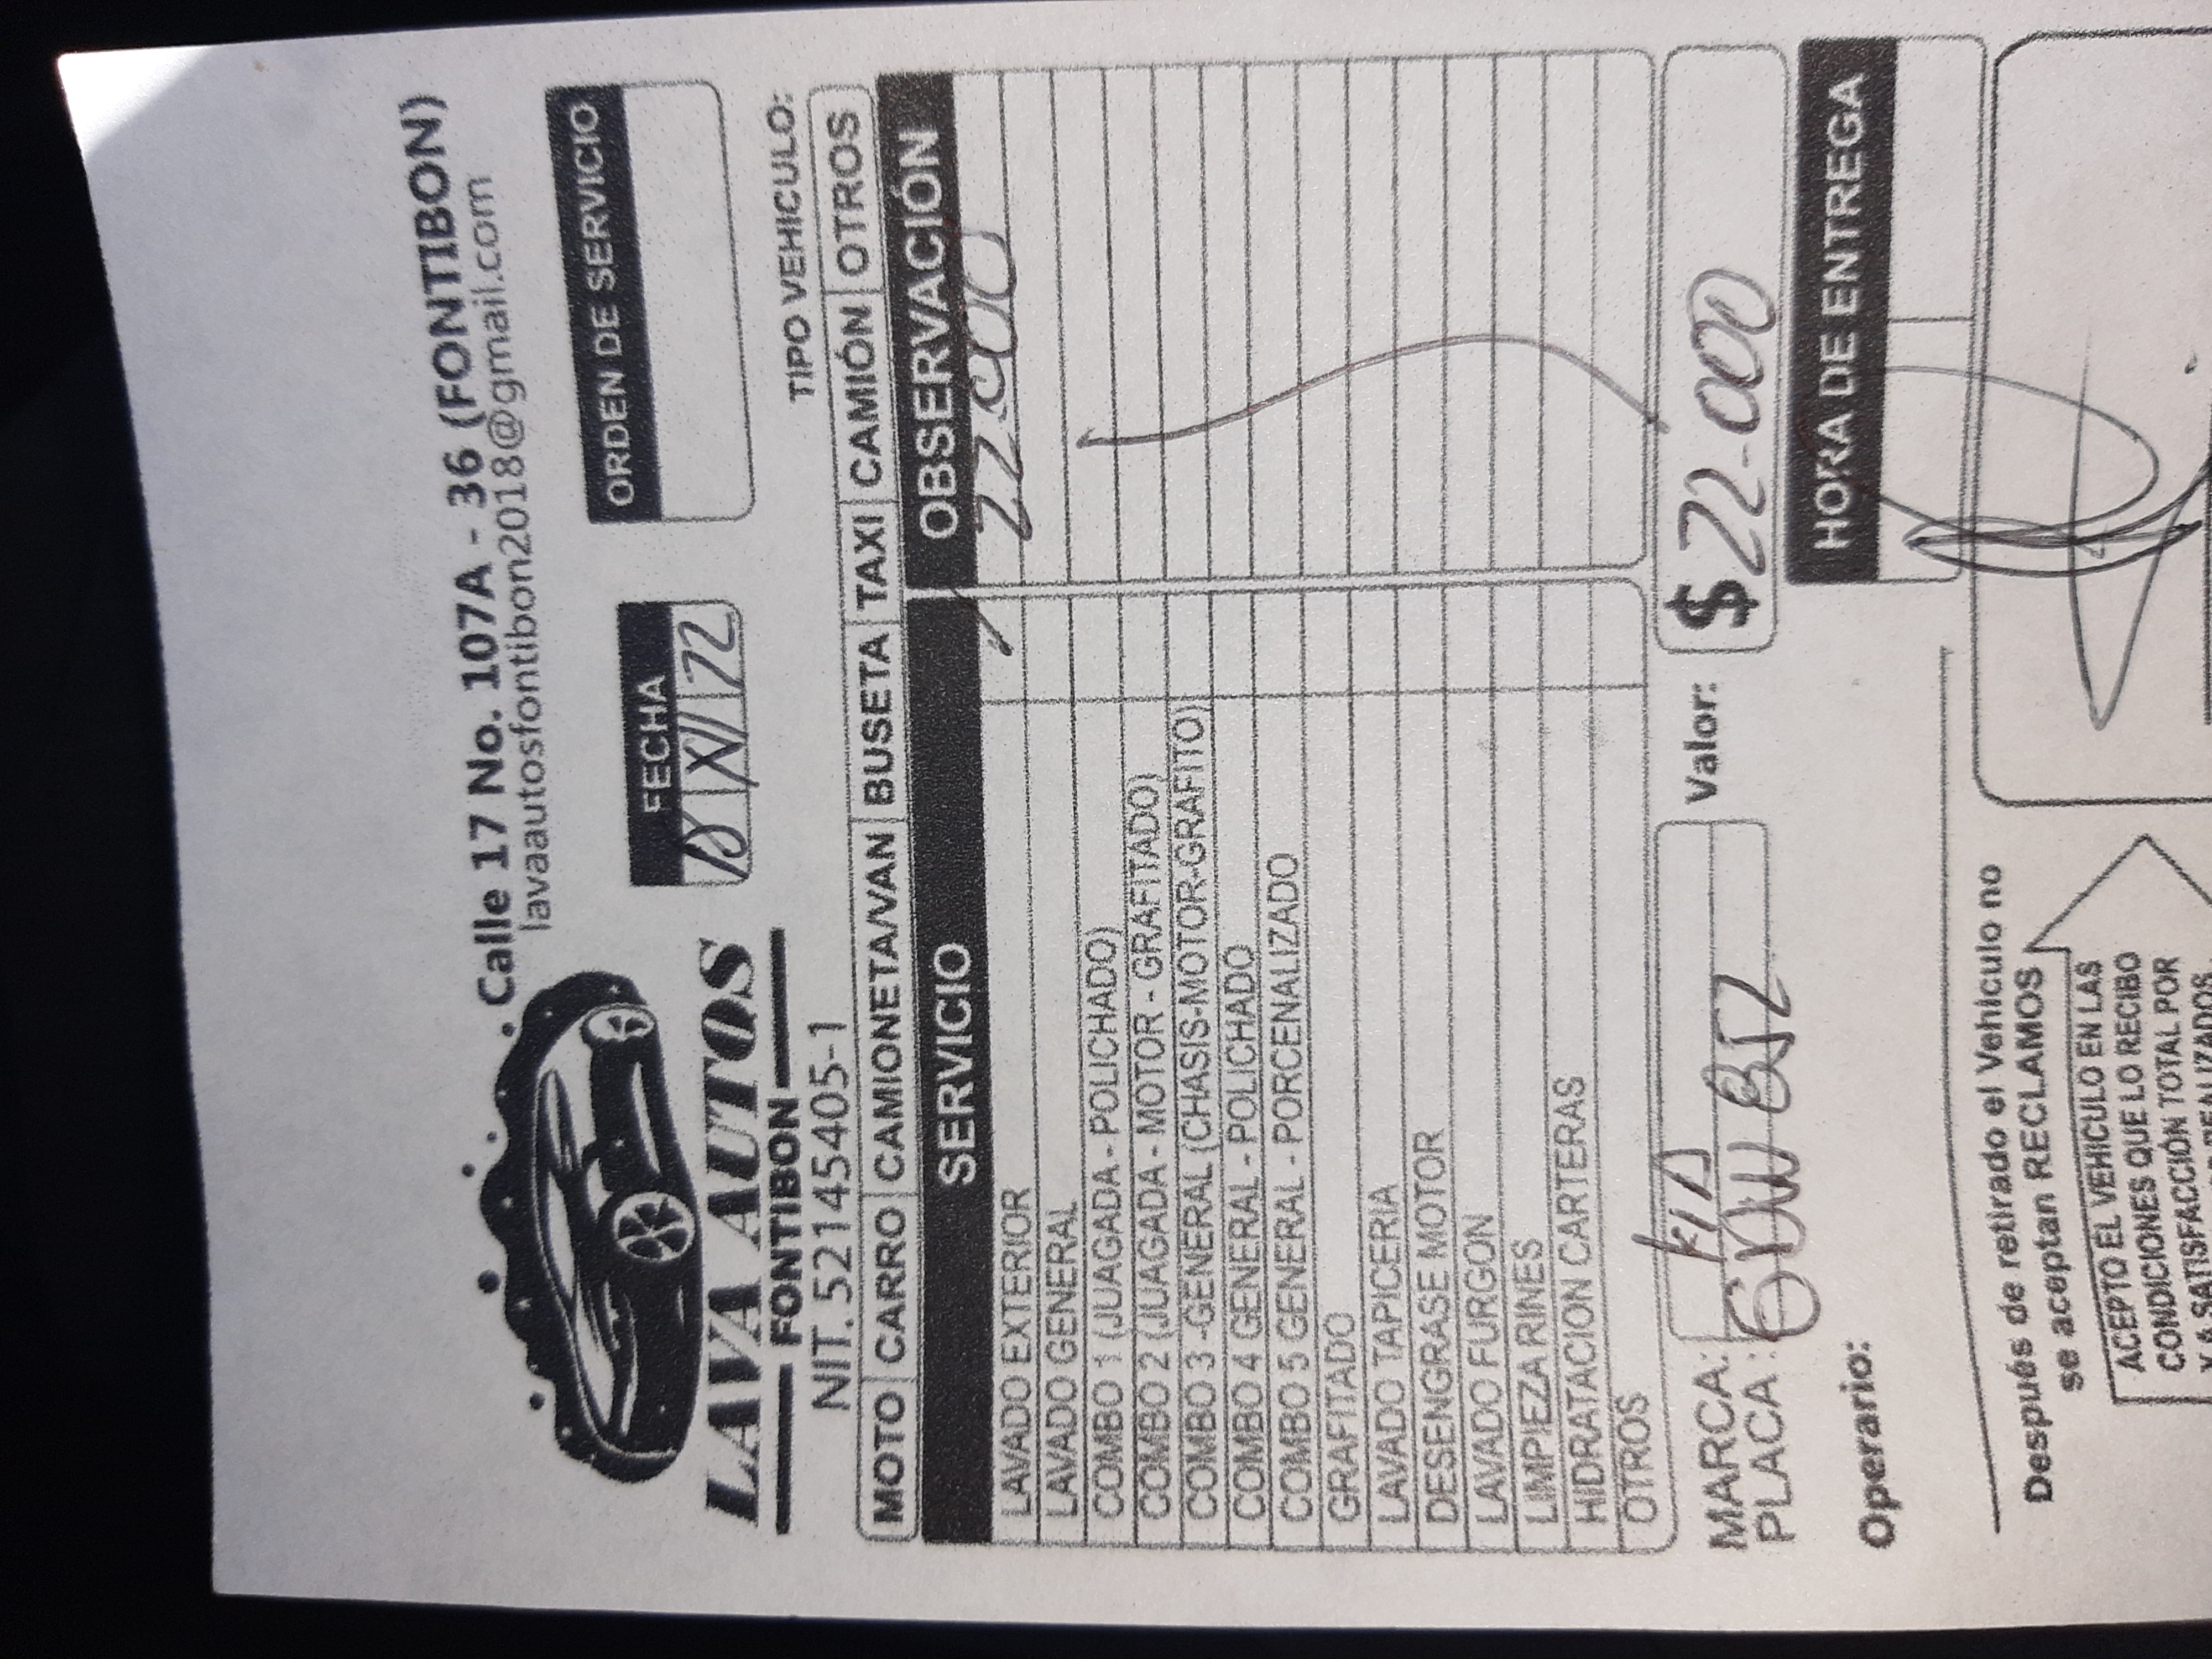 Calle 17 No. 107A - 36 (FONTIBON)
lavaautosfontibon2018@gmail.com
LAVA AUTOS
FONTIBON
NIT. 52145405-1
FECHA
XII 22
ORDEN DE SERVICIO
TIPO VEHICULO:
MOTO CARRO CAMIONETA/VAN BUSETA TAXI CAMIÓN OTROS
SERVICIO OBSERVACIÓN
LAVADO EXTERIOR
LAVADO GENERAL
COMBO 1 (JUAGADA - POLICHADO)
COMBO 2 (JUAGADA - MOTOR - GRAFITADO)
COMBO 3 -GENERAL (CHASIS-MOTOR-GRAFITO)
COMBO 4 GENERAL - POLICHADO
COMBO 5 GENERAL - PORCENALIZADO
GRAFITADO
LAVADO TAPICERIA
DESENGRASE MOTOR
LAVADO FURGON
LIMPIEZA RINES
HIDRATACION CARTERAS
OTROS
MARCA: KIA
PLACA:
Valor: $ 22-000
Operario:
HORA DE ENTREGA
Después de retirado el Vehiculo no
se aceptan RECLAMOS
ACEPTO EL VEHICULO EN LAS
CONDICIONES QUE LO RECIBO
CONDICIÓN TOTAL POR